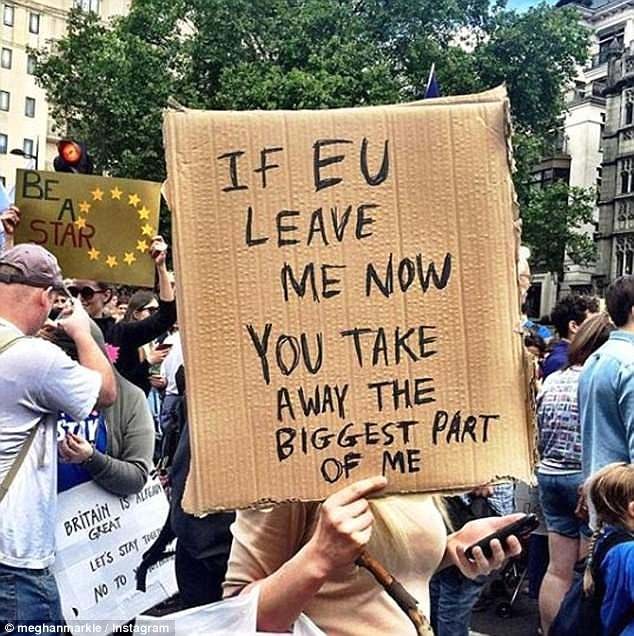 IF EU
LEAVE
ME NOW
YOU TAKE
AWAY THE
BIGGEST PART
OF ME
BE
A
STAR
STAY
BRITAIN IS ALREADY
GREAT
LET'S STAY TOGETHER
NO TO
© meghanmarkle / Instagram